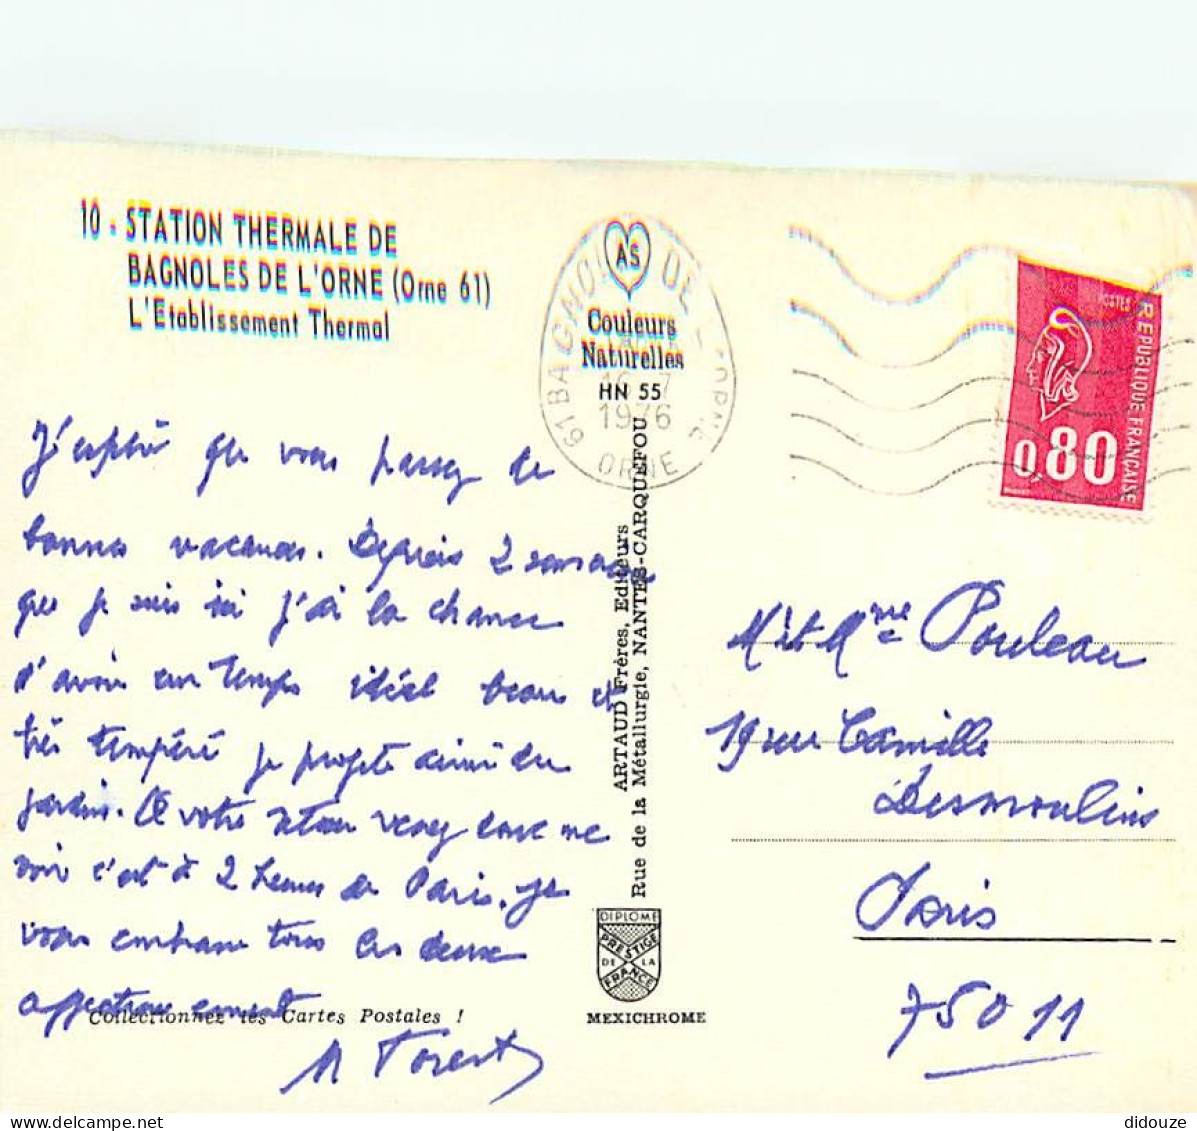 10 - STATION THERMALE DE
BAGNOLES DE L'ORNE (Orne 61)
L'Etablissement Thermal
AS
Couleurs
Naturelles
HN 55
61 BAGNOLES DE L'ORNE
16-7
1976
ORNE
POSTES
REPUBLIQUE FRANÇAISE
0,80
J'espère que vous passez de
bonnes vacances. Depuis 2 semaines
que je suis ici j'ai la chance
d'avoir un temps idéal beau et
très tempéré je profite ainsi du
jardin. A votre retour venez donc me
voir c'est à 2 heures de Paris. Je
vous embrasse tous les deux
affectueusement
Collectionnez les Cartes Postales !
ARTAUD Frères, Editeurs
Rue de la Métallurgie, NANTES-CARQUEFOU
DIPLOME
PRESTIGE
DE LA
FRANCE
MEXICHROME
Mr et Mme Pouleau
19 rue Camille
Desmoulins
Paris
75011
delcampe.net
didouze